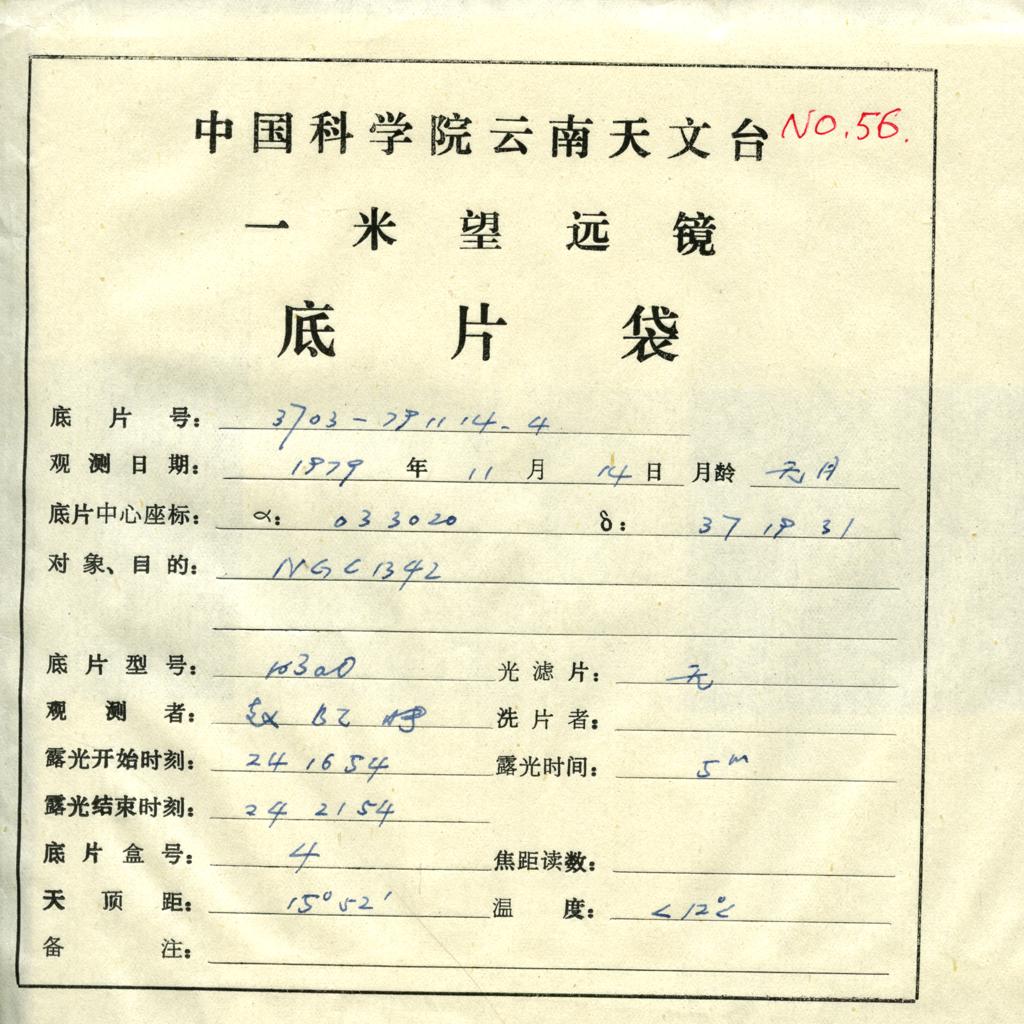 中国科学院云南天文台 NO.56.
一米望远镜
底片袋
底片号: 3703-791114-4
观测日期: 1979年11月14日 月龄 无月
底片中心座标: α: 033020 δ: 37 19 31
对象、目的: NGC1342
底片型号: 103aO 光滤片: 无
观测者: 赵 洗片者:
露光开始时刻: 24 16 54 露光时间: 5m
露光结束时刻: 24 21 54
底片盒号: 4 焦距读数:
天顶距: 15°52' 温度: <12℃
备注: